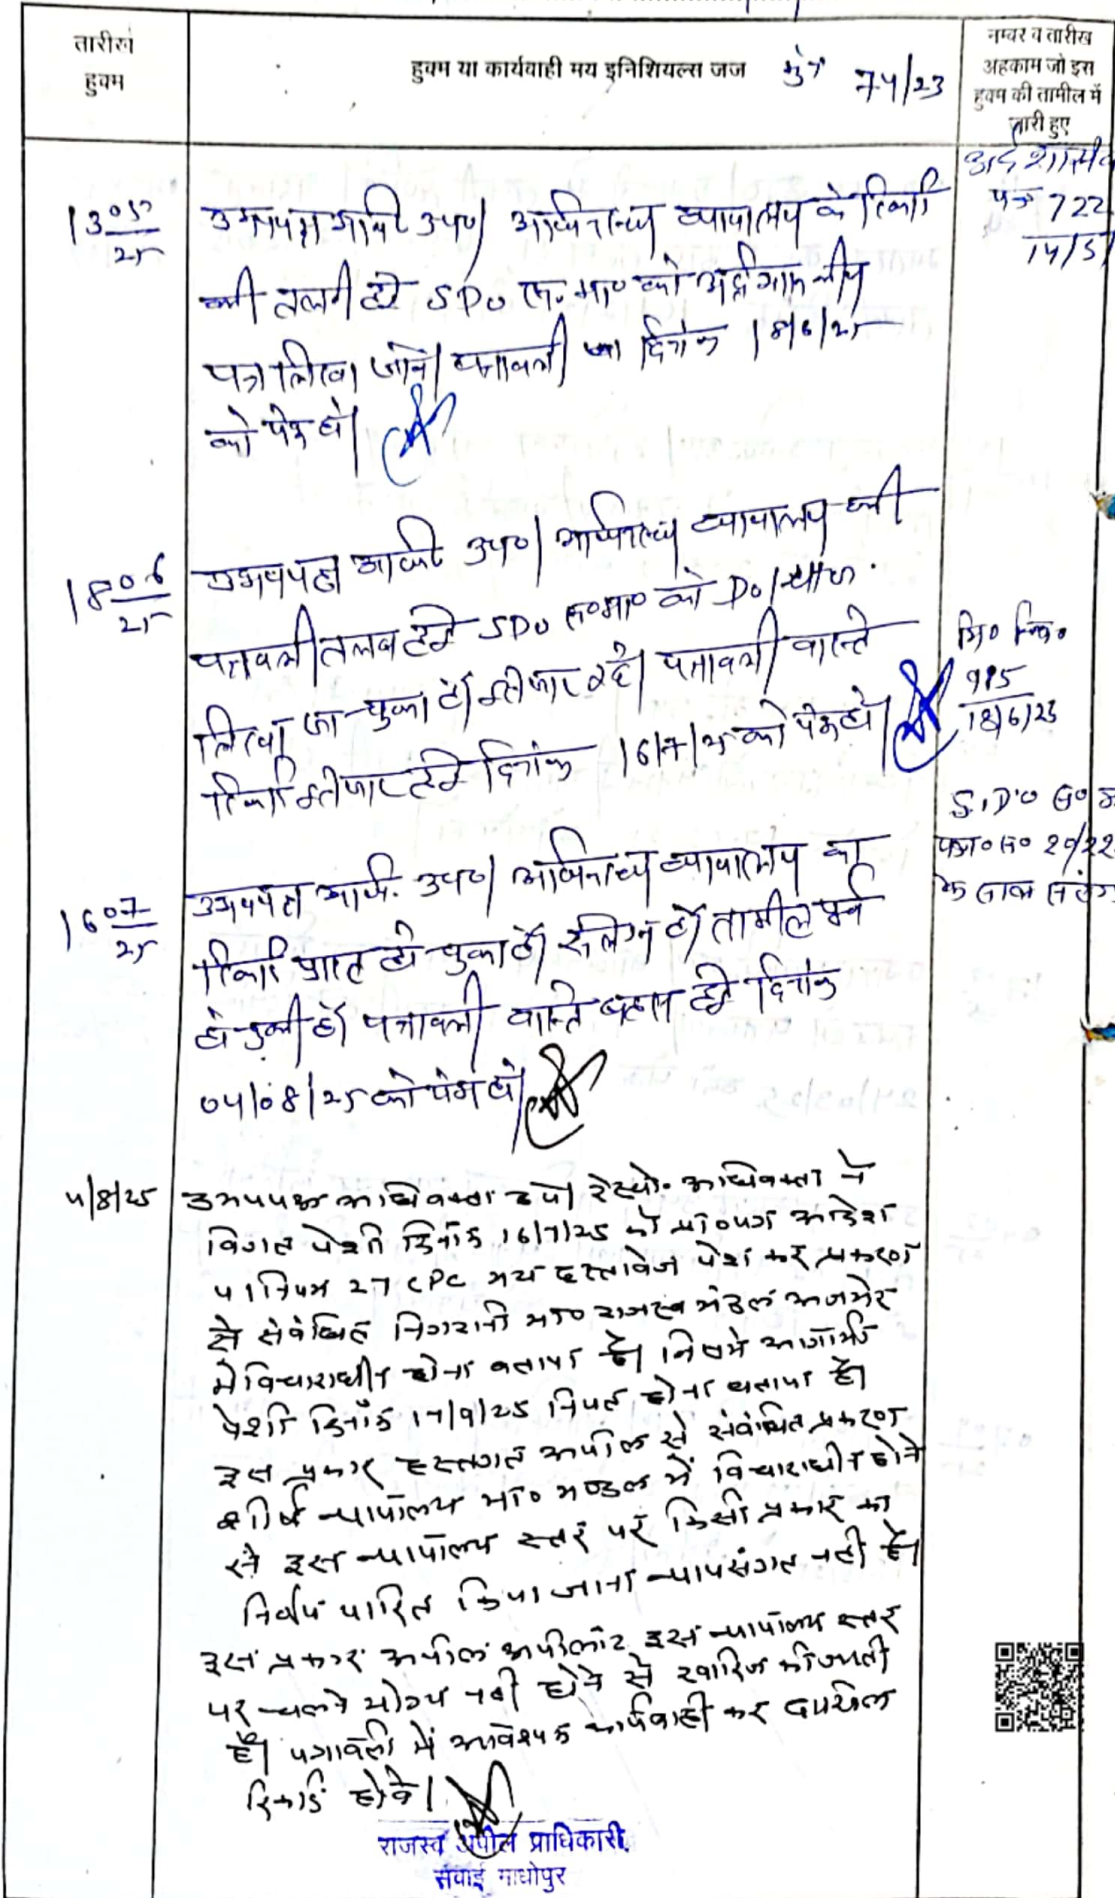 तारीख हुक्म
हुक्म या कार्यवाही मय इनिशियल्स जज
74/23
नम्बर व तारीख
अहकाम जो इस
हुक्म की तामील में
जारी हुए
पत्र 722
14/5/
13 05/25
उभयपक्ष अभि० उप०। अधिनस्थ न्यायालय के रिकार्ड
की तलबी हेतु SDO स.मा० को अर्द्धशासकीय
पत्र लिखा जावे। पत्रावली दिनांक 18/6/25
को पेश हो।
18 06/25
उभयपक्ष अभि० उप०। अधिनस्थ न्यायालय की
पत्रावली तलब हेतु SDO स०मा० को D.O.
लिखा जा चुका है। इन्तेजार रहे। पत्रावली वास्ते
रिकार्ड इन्तेजार हेतु दिनांक 16/7/25 को पेश हो।
915
18/6/25
S.D.O स०
20/22
के साथ संलग्न
16 07/25
उभयपक्ष अभि. उप०। अधिनस्थ न्यायालय का
रिकार्ड प्राप्त हो चुका है। संलग्न हो। तामील पूर्व
हो चुकी है। पत्रावली वास्ते बहस हेतु दिनांक
04/08/25 को पेश हो।
4/8/25
उभयपक्ष अधिवक्ता उप०। रेस्पो. अधिवक्ता ने
विगत पेशी दिनांक 16/7/25 को प्रा०पत्र आदेश
41 नियम 27 CPC मय दस्तावेज पेश कर प्रकरण
से संबंधित निगरानी मा० राजस्व मंडल अजमेर
में विचाराधीन होना बताया है। जिसमें आगामी
पेशी दिनांक 17/9/25 नियत होना बताया है।
इस प्रकार हस्तगत अपील से संबंधित प्रकरण
शीर्ष न्यायालय मा० मण्डल में विचाराधीन होने
से इस न्यायालय स्तर पर किसी प्रकार का
निर्णय पारित किया जाना न्यायसंगत नहीं है।
इस प्रकार अपील अपीलांट इस न्यायालय स्तर
पर चलने योग्य नहीं होने से खारिज की जाती
है। पत्रावली में आवश्यक कार्यवाही कर दाखिल
रिकार्ड होवे।
राजस्व अपील प्राधिकारी
सवाई माधोपुर